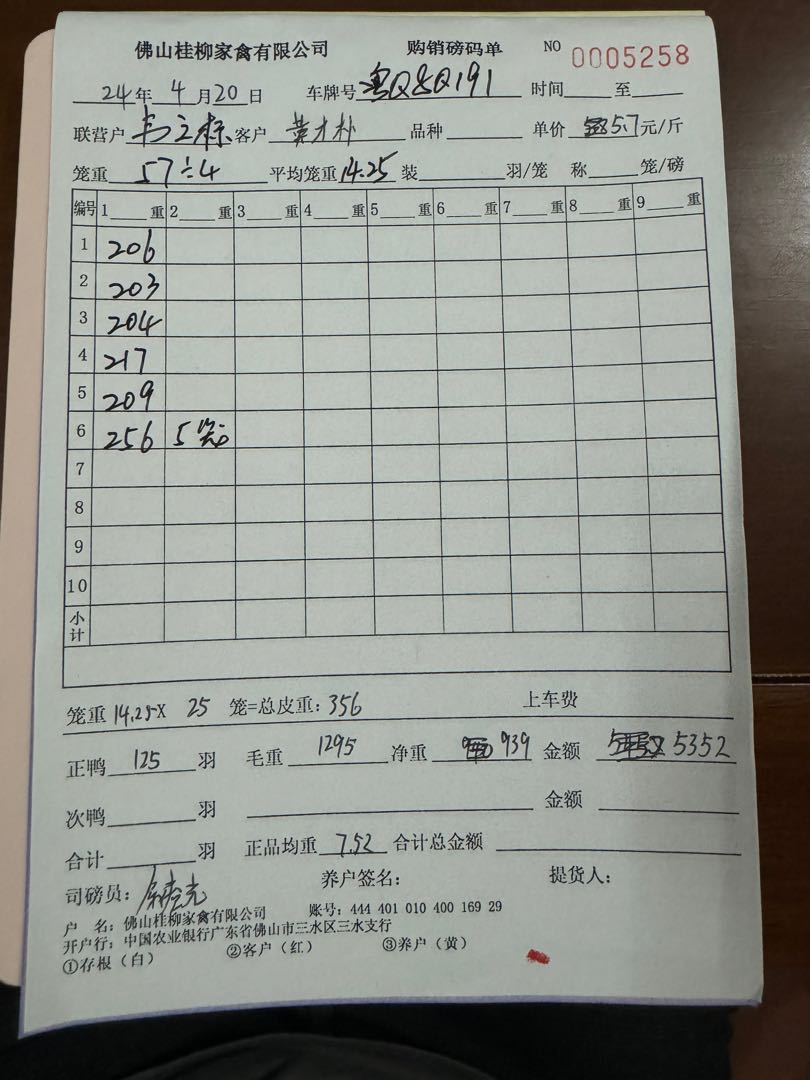 佛山桂柳家禽有限公司 购销磅码单 NO 0005258
24年 4月20日 车牌号 粤Q8Q191 时间 至
联营户 客户 品种 单价 5.7元/斤
笼重 57÷4 平均笼重14.25 装 羽/笼 称 笼/磅
编号 1 重 2 重 3 重 4 重 5 重 6 重 7 重 8 重 9 重
1 206
2 203
3 204
4 217
5 209
6 256 5笼
7
8
9
10
小计
笼重14.25X 25 笼=总皮重:356 上车费
正鸭 125 羽 毛重 1295 净重 939 金额 5352
次鸭 羽 金额
合计 羽 正品均重 7.52 合计总金额
司磅员: 养户签名: 提货人:
户 名:佛山桂柳家禽有限公司 账号:444 401 010 400 169 29
开户行:中国农业银行广东省佛山市三水区三水支行
①存根(白) ②客户(红) ③养户(黄)